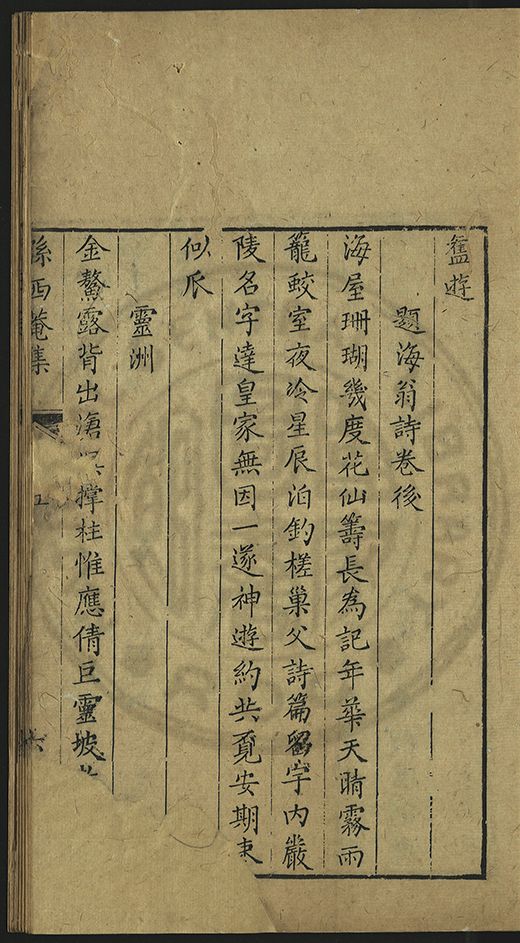 遊
題海翁詩卷後
海屋珊瑚幾度花仙籌長為記年華天晴霧雨
籠鮫室夜冷星辰泊釣槎巢父詩篇留宇内嚴
陵名字達皇家無因一遂神遊約共覓安期
似瓜
靈洲
金鰲露背出滄撐柱惟應倩巨靈坡
孫西菴集